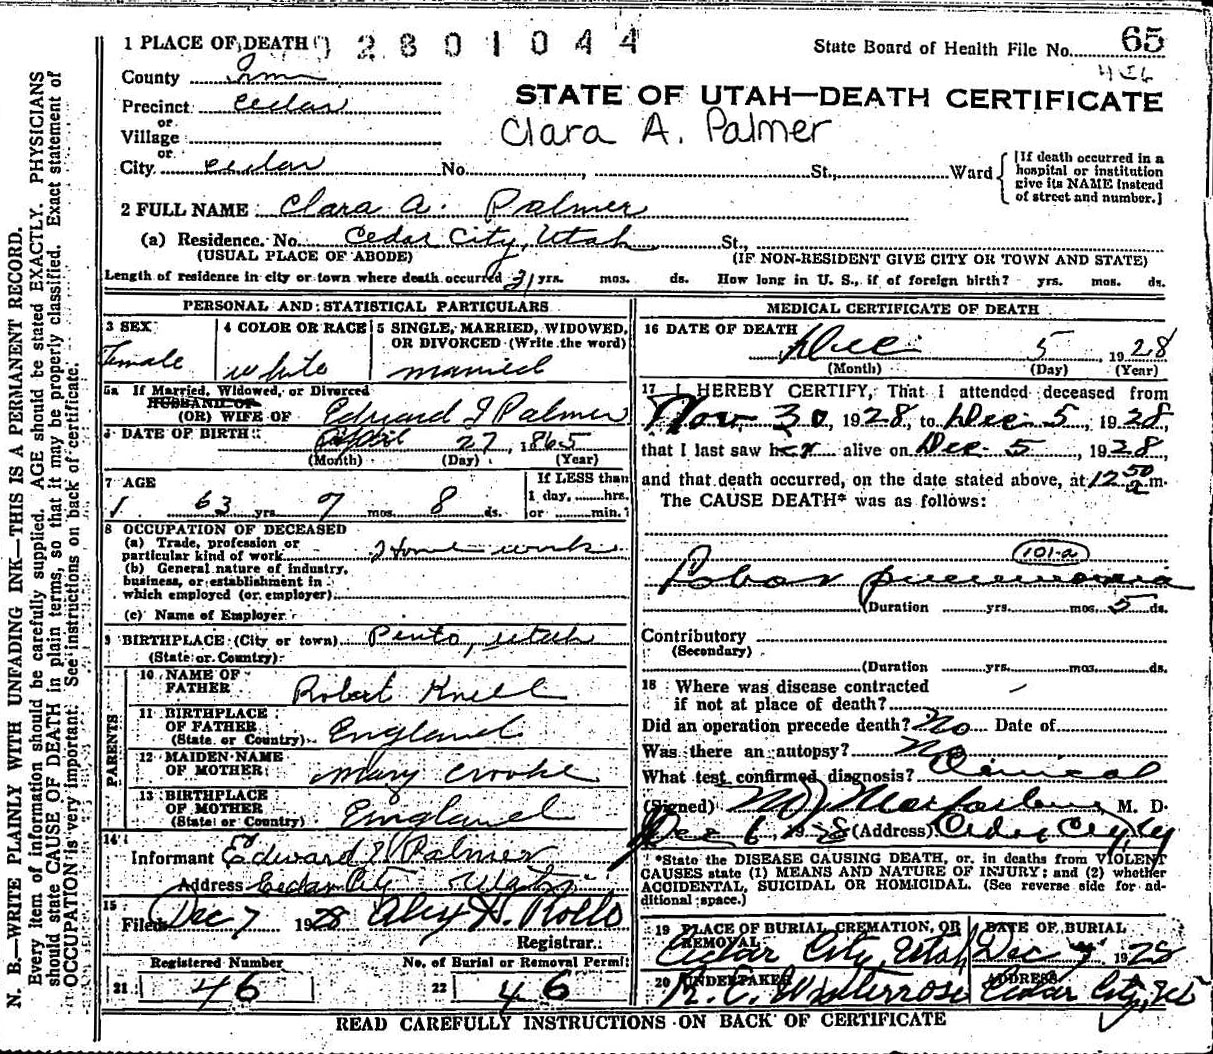 1 PLACE OF DEATH 2801044 State Board of Health File No. 65
County Iron
Precinct Cedar
STATE OF UTAH—DEATH CERTIFICATE
or
Village
Clara A. Palmer
or
City Cedar No. St., Ward
[If death occurred in a
hospital or institution
give its NAME instead
of street and number.]
2 FULL NAME Clara A. Palmer
(a) Residence. No. Cedar City, Utah St.,
(USUAL PLACE OF ABODE) (IF NON-RESIDENT GIVE CITY OR TOWN AND STATE)
Length of residence in city or town where death occurred 31 yrs. mos. ds. How long in U. S., if of foreign birth? yrs. mos. ds.
PERSONAL AND STATISTICAL PARTICULARS
3 SEX
Female
4 COLOR OR RACE
white
5 SINGLE, MARRIED, WIDOWED,
OR DIVORCED (Write the word)
married
5a If Married, Widowed, or Divorced
HUSBAND OF
(OR) WIFE OF Edward J Palmer
DATE OF BIRTH April 27, 1865
(Month) (Day) (Year)
7 AGE
63 yrs 7 mos. 8 ds.
If LESS than
1 day, hrs.
or min.
8 OCCUPATION OF DECEASED
(a) Trade, profession or
particular kind of work Home work
(b) General nature of industry,
business, or establishment in
which employed (or employer)
(c) Name of Employer
9 BIRTHPLACE (City or town) Pinto, Utah
(State or Country)
PARENTS
10 NAME OF
FATHER Robert Knell
11 BIRTHPLACE
OF FATHER
(State or Country) England
12 MAIDEN NAME
OF MOTHER Mary Crooke
13 BIRTHPLACE
OF MOTHER
(State or Country) England
14
Informant Edward J Palmer
Address Cedar City Utah
15
Filed Dec 7 1928
Registrar.
Registered Number
21 46
No. of Burial or Removal Permit
22 46
MEDICAL CERTIFICATE OF DEATH
16 DATE OF DEATH
Dec 5, 1928
(Month) (Day) (Year)
17 I HEREBY CERTIFY, That I attended deceased from
Nov 30, 1928, to Dec 5, 1928,
that I last saw her alive on Dec 5, 1928,
and that death occurred, on the date stated above, at 12 50 a m.
The CAUSE DEATH* was as follows:
101-a
Lobar pneumonia
(Duration yrs. mos. 5 ds.
Contributory
(Secondary)
(Duration yrs. mos. ds.
18 Where was disease contracted
if not at place of death?
Did an operation precede death? No Date of
Was there an autopsy? No
What test confirmed diagnosis? Clinical
(Signed) Macfarlane, M. D.
Dec 6, 1928 (Address) Cedar City
*State the DISEASE CAUSING DEATH, or, in deaths from VIOLENT
CAUSES state (1) MEANS AND NATURE OF INJURY; and (2) whether
ACCIDENTAL, SUICIDAL OR HOMICIDAL. (See reverse side for ad-
ditional space.)
19 PLACE OF BURIAL, CREMATION, OR
REMOVAL
Cedar City, Utah
DATE OF BURIAL
Dec 7 1928
20 UNDERTAKER
R. C. Winterrose
ADDRESS
Cedar City, Ut
READ CAREFULLY INSTRUCTIONS ON BACK OF CERTIFICATE
N. B.—WRITE PLAINLY WITH UNFADING INK—THIS IS A PERMANENT RECORD.
Every item of information should be carefully supplied. AGE should be stated EXACTLY. PHYSICIANS
should state CAUSE OF DEATH in plain terms, so that it may be properly classified. Exact statement of
OCCUPATION is very important. See instructions on back of certificate.